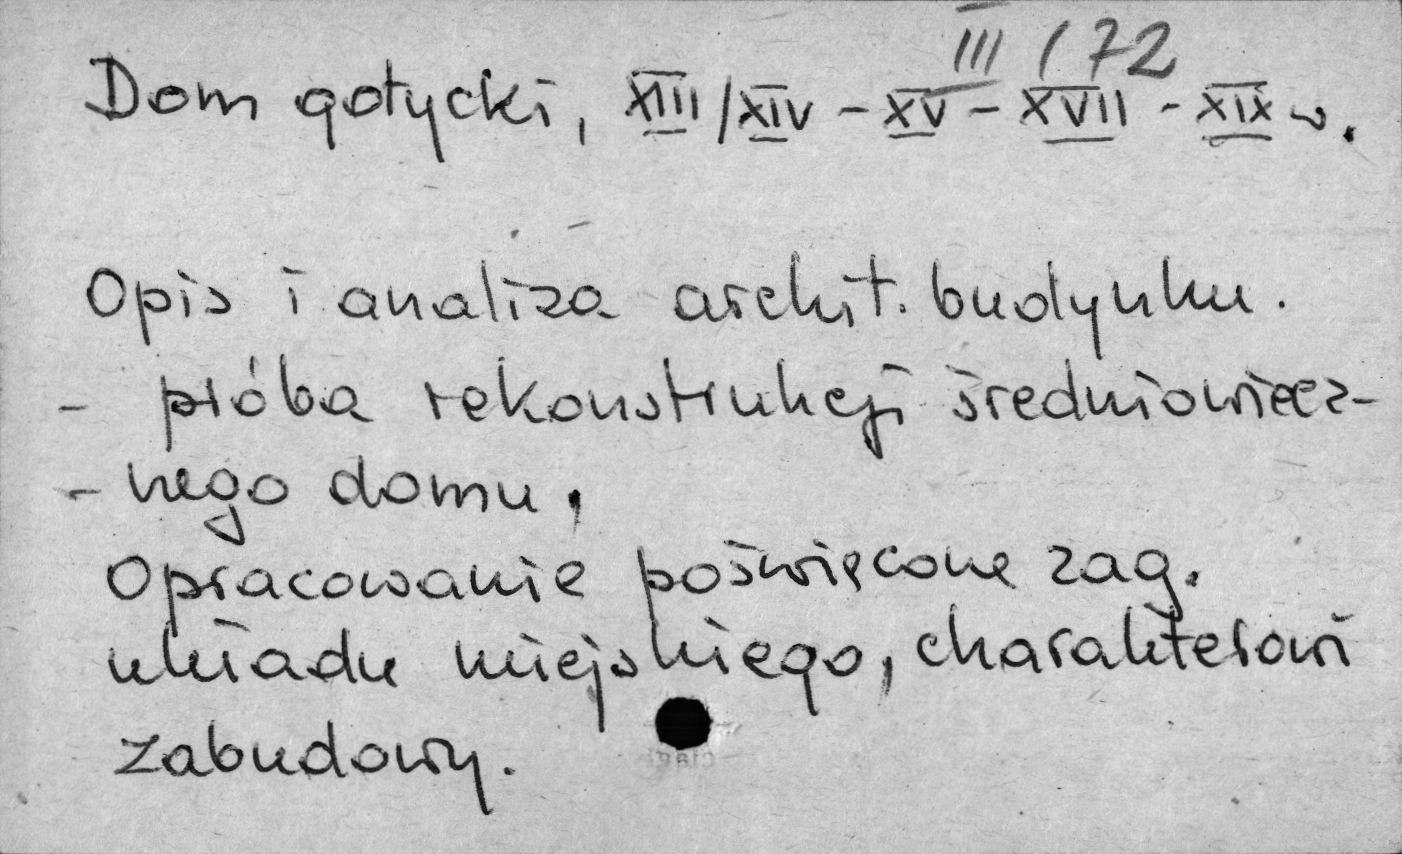 III / 72
Dom gotycki, XIII/XIV - XV - XVII - XIX w.
Opis i analiza archit. budynku.
- próba rekonstrukcji średniowiecz-
- nego domu,
Opracowanie poświęcone zag.
układu miejskiego, charakterowi
zabudowy.